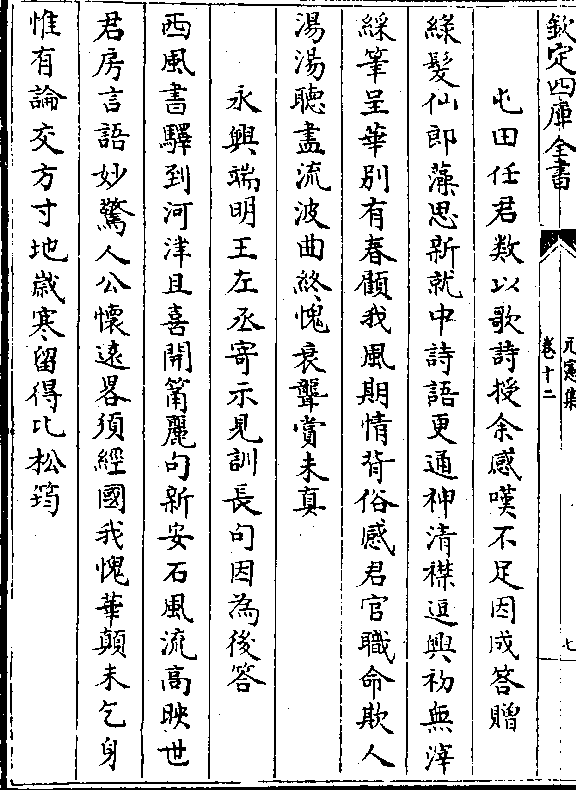 欽定四庫全書
元憲集
卷十二
七
屯田任君數以歌詩授余感嘆不足因成答贈
綠髮仙郎藻思新就中詩語更通神清襟迥興初無滓
綵筆呈華別有春顧我風期情背俗感君官職命欺人
湯湯聽盡流波曲終愧衰聾賞未真
永興端明王左丞寄示見訓長句因為後答
西風書驛到河津且喜開箾麗句新安石風流高映世
君房言語妙驚人公懷遠畧須經國我愧華顛未乞身
惟有論交方寸地歳寒留得比松筠